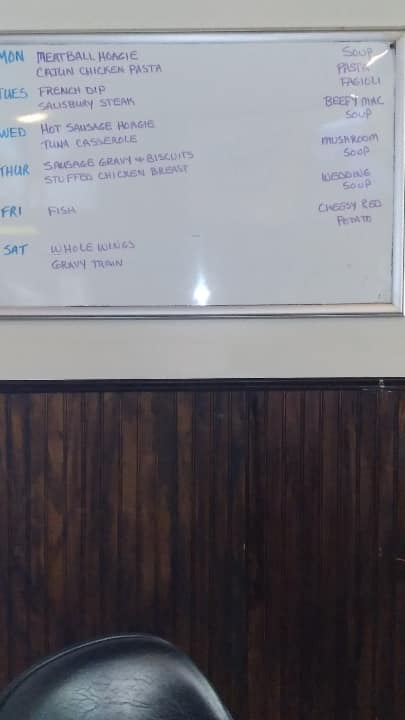 MON MEATBALL HOAGIE
CAJUN CHICKEN PASTA
TUES FRENCH DIP
SALISBURY STEAK
WED HOT SAUSAGE HOAGIE
TUNA CASSEROLE
THUR SAUSAGE GRAVY + BISCUITS
STUFFED CHICKEN BREAST
FRI FISH
SAT WHOLE WINGS
GRAVY TRAIN
SOUP
PASTA
FAGIOLI
BEEFY MAC
SOUP
MUSHROOM
SOUP
WEDDING
SOUP
CHEESY RED
POTATO